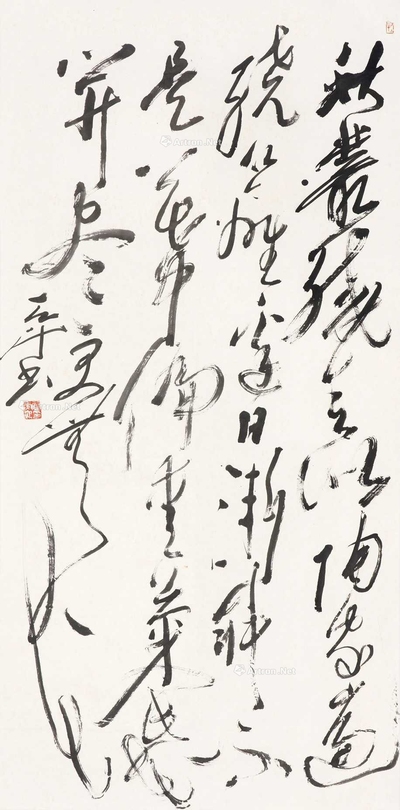 秋叢繞舍似陶家遍
繞籬邊日漸斜不
是花中偏愛菊此花
開盡更無花